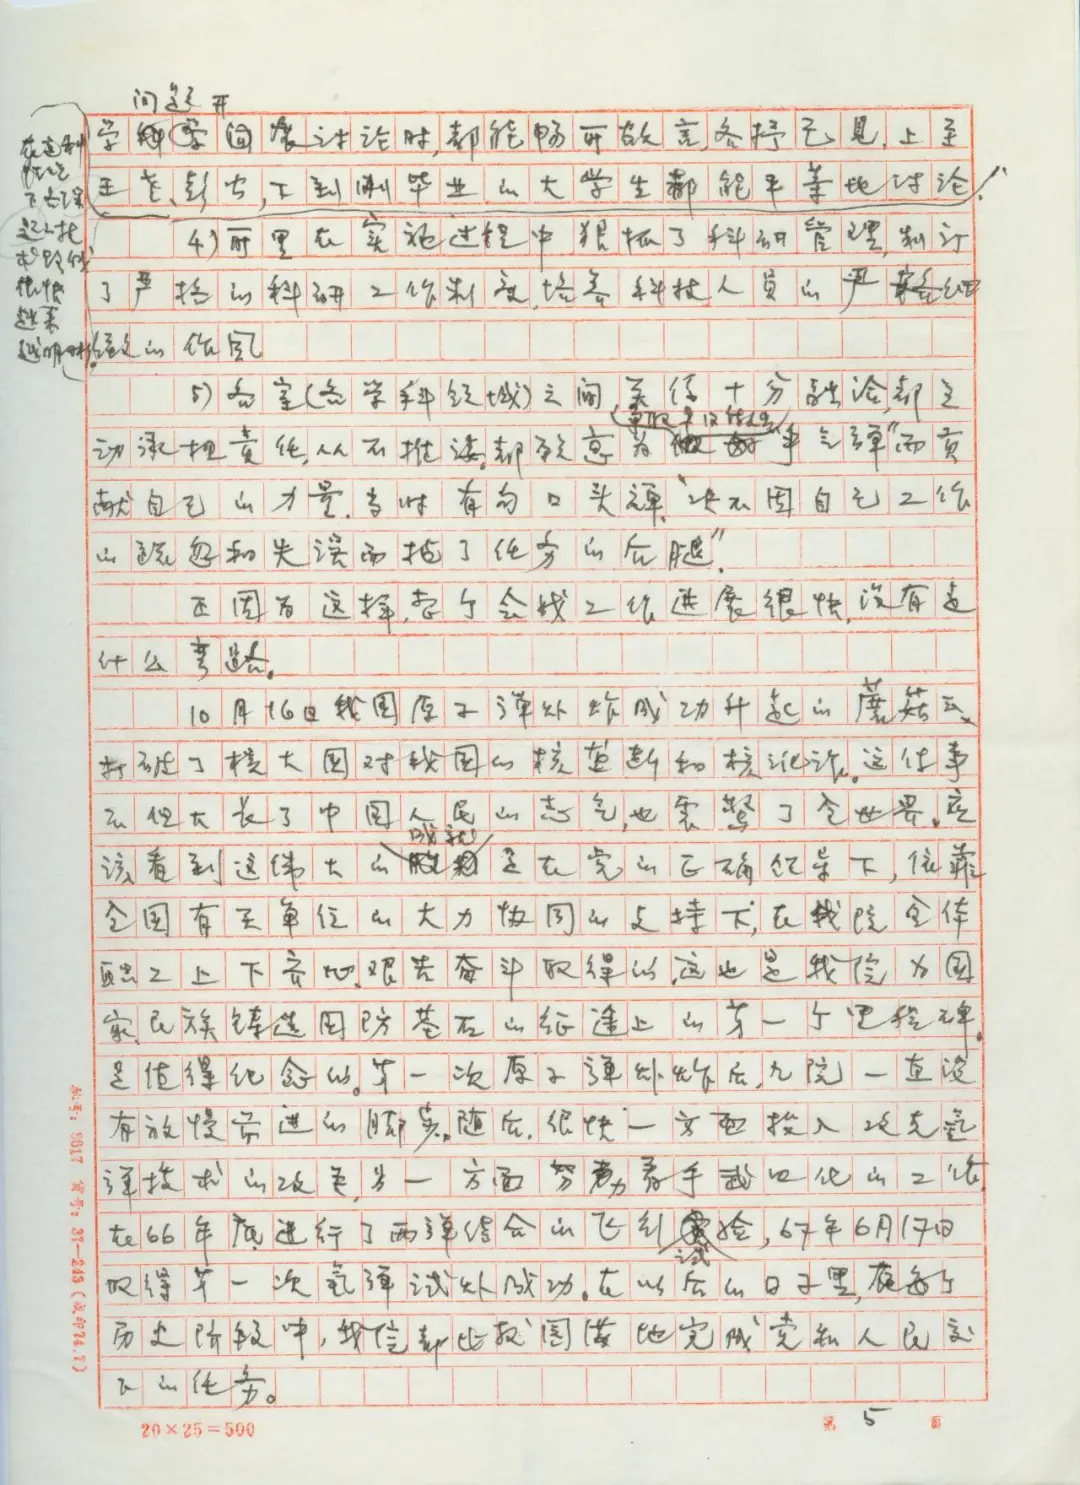 问题开
学科学问展讨论时,都能畅所欲言,各抒己见,上至
王老、彭公,下到刚毕业的大学生都能平等地讨论.
在这制
下
起的技
术路线
很快
越来
越明晰.
4) 所里在实施过程中狠抓了科研管理,制订
了严格的科研工作制度,培养科技人员的严
的作风
5) 各室(各学科领域)之间,关系十分融洽,都主
动承担责任,从不推诿.都愿意为争气弹"而贡
献自己的力量.当时有句口头禅,"决不因自己工作
的疏忽和失误而拖了任务的后腿".
正因为这样,整个会战工作进展很快,没有走
什么弯路。
10月16日我国原子弹爆炸成功升起的蘑菇云,
打破了核大国对我国的核垄断和核讹诈。这件事
不但大长了中国人民的志气,也震惊了全世界.应
成就
该看到这伟大的是在党的正确领导下,依靠
全国有关单位的大力协同的支持下,在我院全体
职工上下齐心,艰苦奋斗取得的.这也是我院为国
家民族铸造国防基石的征途上的第一个里程碑.
是值得纪念的.第一次原子弹爆炸后,九院一直没
有放慢前进的脚步。随后,很快一方面投入攻克氢
弹技术的攻关,另一方面努力着手武器化的工作.
在66年底进行了两弹结合的飞行验,67年6月17日
试
取得第一次氢弹试爆成功.在以后的日子里,在每个
历史阶段中,我院都比较圆满地完成党和人民交
下的任务。
纸号:5017 货号:37—248(成印74.7)
20×25=500
第 5 页